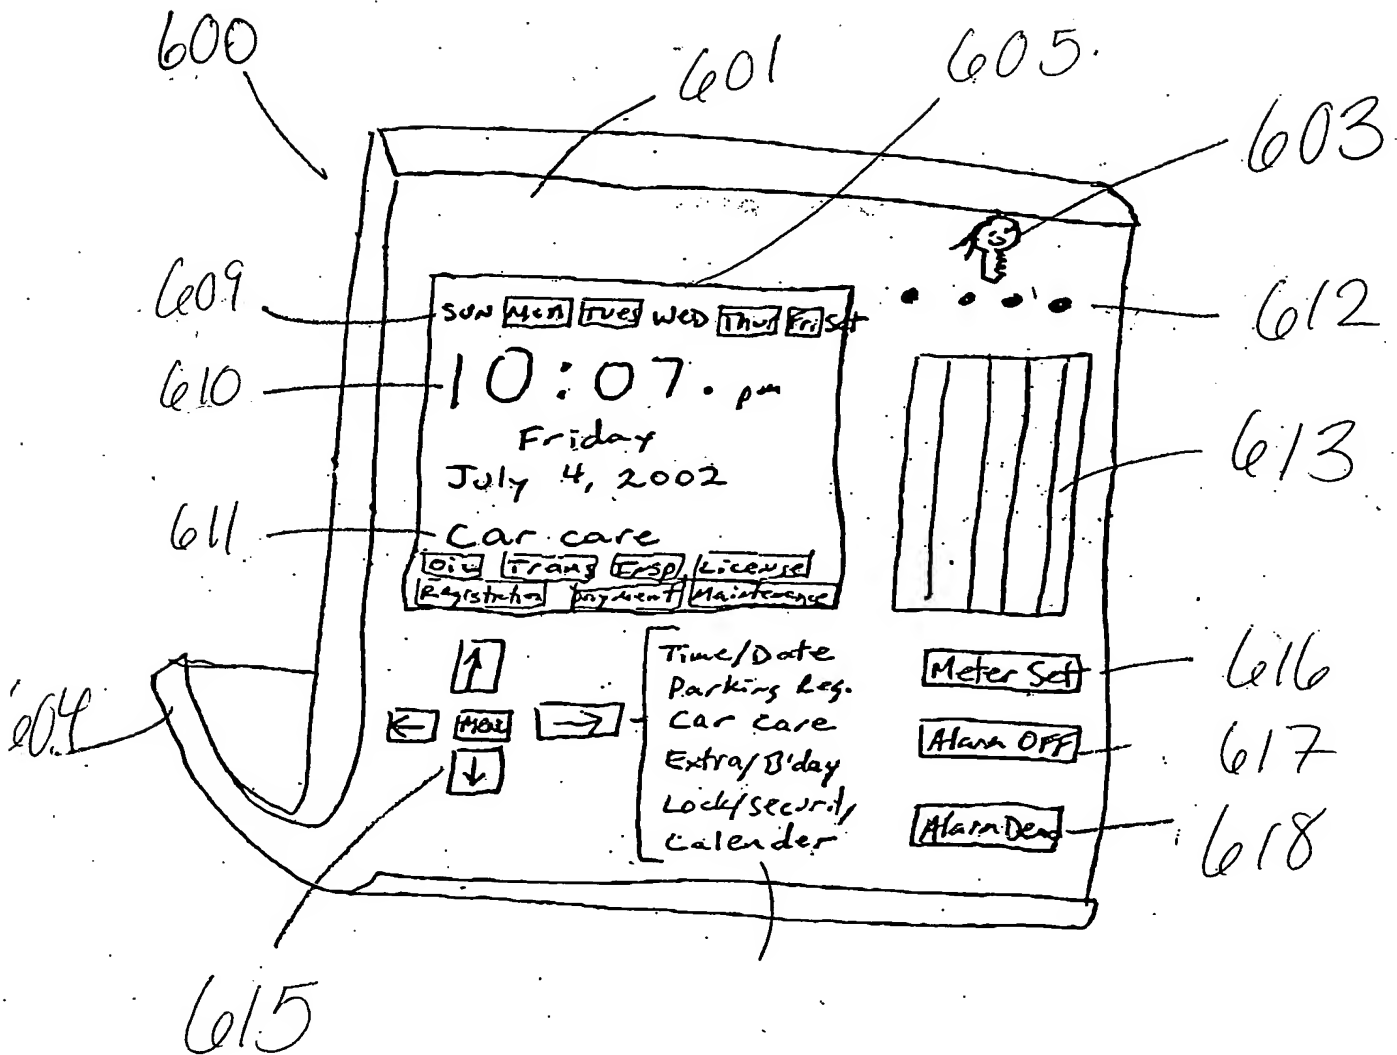 600
601
605
603
609
SUN Mon Tues WED Thur Fri Sat
612
610
10:07. pm
Friday
July 4, 2002
613
611
Car care
Trans License
Registration payment Maintenance
Time/Date
Parking Reg.
Car care
Extra/B'day
Lock/security
Calender
Menu
Meter Set
616
604
Alarm OFF
617
Alarm
618
615